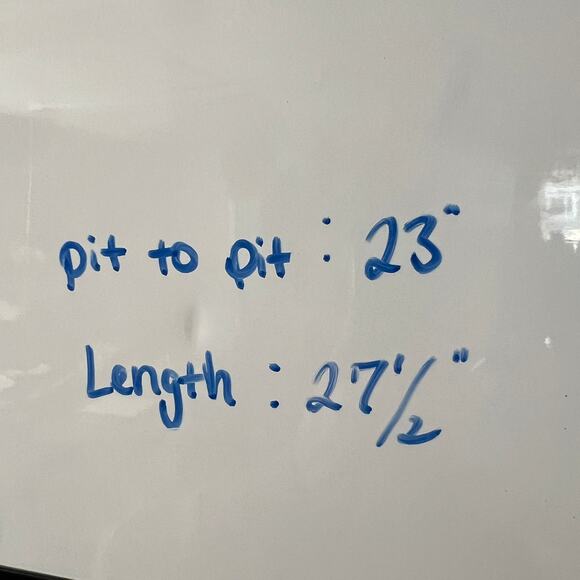 pit to pit : 23"
Length : 27 1/2"